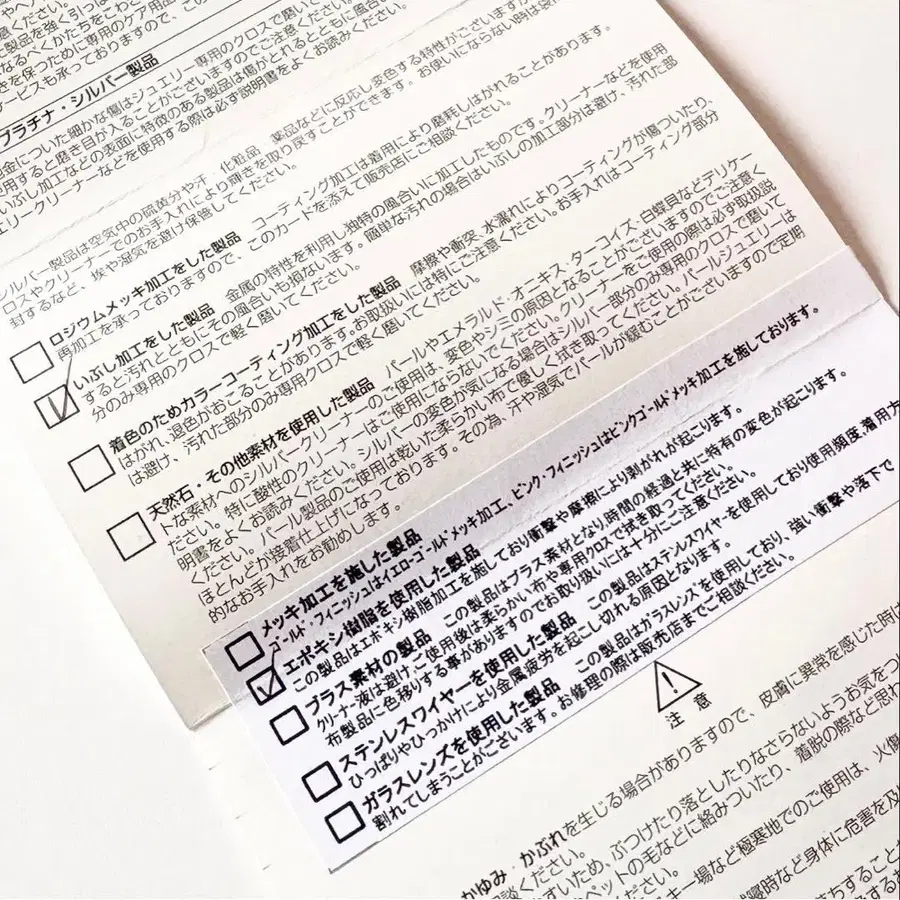 ださい。
製品を強く引っぱ
なるべくかたちをこわさ
きを保つために専用のケア用品
サービスも承っておりますので、この
プラチナ・シルバー製品
地金についた細かな傷はジュエリー専用のクロスで磨い
使用すると磨き目が入ることがございますのでご注意くだ
いぶし加工などの表面に特徴のある製品は傷がとれるとともに風合
エリークリーナーなどを使用する際は必ず説明書をよくお読みください。
シルバー製品は空気中の硫黄分や汗、化粧品、薬品などに反応し変色する特性がございますが
クロスやクリーナーでのお手入れにより輝きを取り戻すことができます。お使いにならない時は袋
封するなど、埃や湿気を避け保管してください。
ロジウムメッキ加工をした製品 コーティング加工は着用により磨耗しはがれることがあります。
再加工を承っておりますので、このカードを添えて販売店にご相談ください。
いぶし加工をした製品 金属の特性を利用し独特の風合いに加工したものです。クリーナーなどを使用
すると汚れとともにその風合いも損ないます。簡単な汚れの場合はいぶしの加工部分は避け、汚れた部
分のみ専用のクロスで軽く磨いてください。
着色のためカラーコーティング加工をした製品 摩擦や衝突、水濡れによりコーティングが傷ついたり、
はがれ、退色がおこることがあります。お取扱いには特にご注意ください。お手入れはコーティング部分
は避け、汚れた部分のみ専用クロスで軽く磨いてください。
天然石・その他素材を使用した製品 パールやエメラルド、オニキス、ターコイズ、白蝶貝などデリケー
トな素材へのシルバークリーナーのご使用は、変色やシミの原因となることがございますのでご注意く
ださい。特に酸性のクリーナーはご使用にならないでください。クリーナーをご使用の際は必ず取扱説
明書をよくお読みください。シルバーの変色が気になる場合はシルバー部分のみ専用のクロスで磨いて
ください。パール製品のご使用は乾いた柔らかい布で優しく拭き取ってください。パールジュエリーは
ほとんどが接着仕上げになっております。その為、汗や湿気でパールが緩むことがございますので定期
的なお手入れをお勧めします。
メッキ加工を施した製品
ゴールド・フィニッシュはイエローゴールドメッキ加工、ピンク・フィニッシュはピンクゴールドメッキ加工を施しております。
エポキシ樹脂を使用した製品
この製品はエポキシ樹脂加工を施しており衝撃や摩擦により剥がれが起こります。
ブラス素材の製品 この製品はブラス素材となり、時間の経過と共に特有の変色が起こります。
クリーナー液は避け、ご使用後は柔らかい布や専用クロスで拭き取ってください。
布製品に色移りする事がありますのでお取り扱いには十分にご注意ください。
ステンレスワイヤーを使用した製品 この製品はステンレスワイヤーを使用しており使用頻度、着用方
ひっぱりやひっかけにより金属疲労を起こし切れる原因となります。
ガラスレンズを使用した製品 この製品はガラスレンズを使用しており、強い衝撃や落下で
割れてしまうことがございます。お修理の際は販売店までご相談ください。
注意
かゆみ・かぶれを生じる場合がありますので、皮膚に異常を感じた時は
相談ください。
すいため、ぶつけたり落としたりなさらないようお気をつけ
ペットの毛などに絡みついたり、着脱の際など思わ
ださい。
キー場など極寒地でのご使用は、火傷
寝時など身体に危害を及
落ちすること